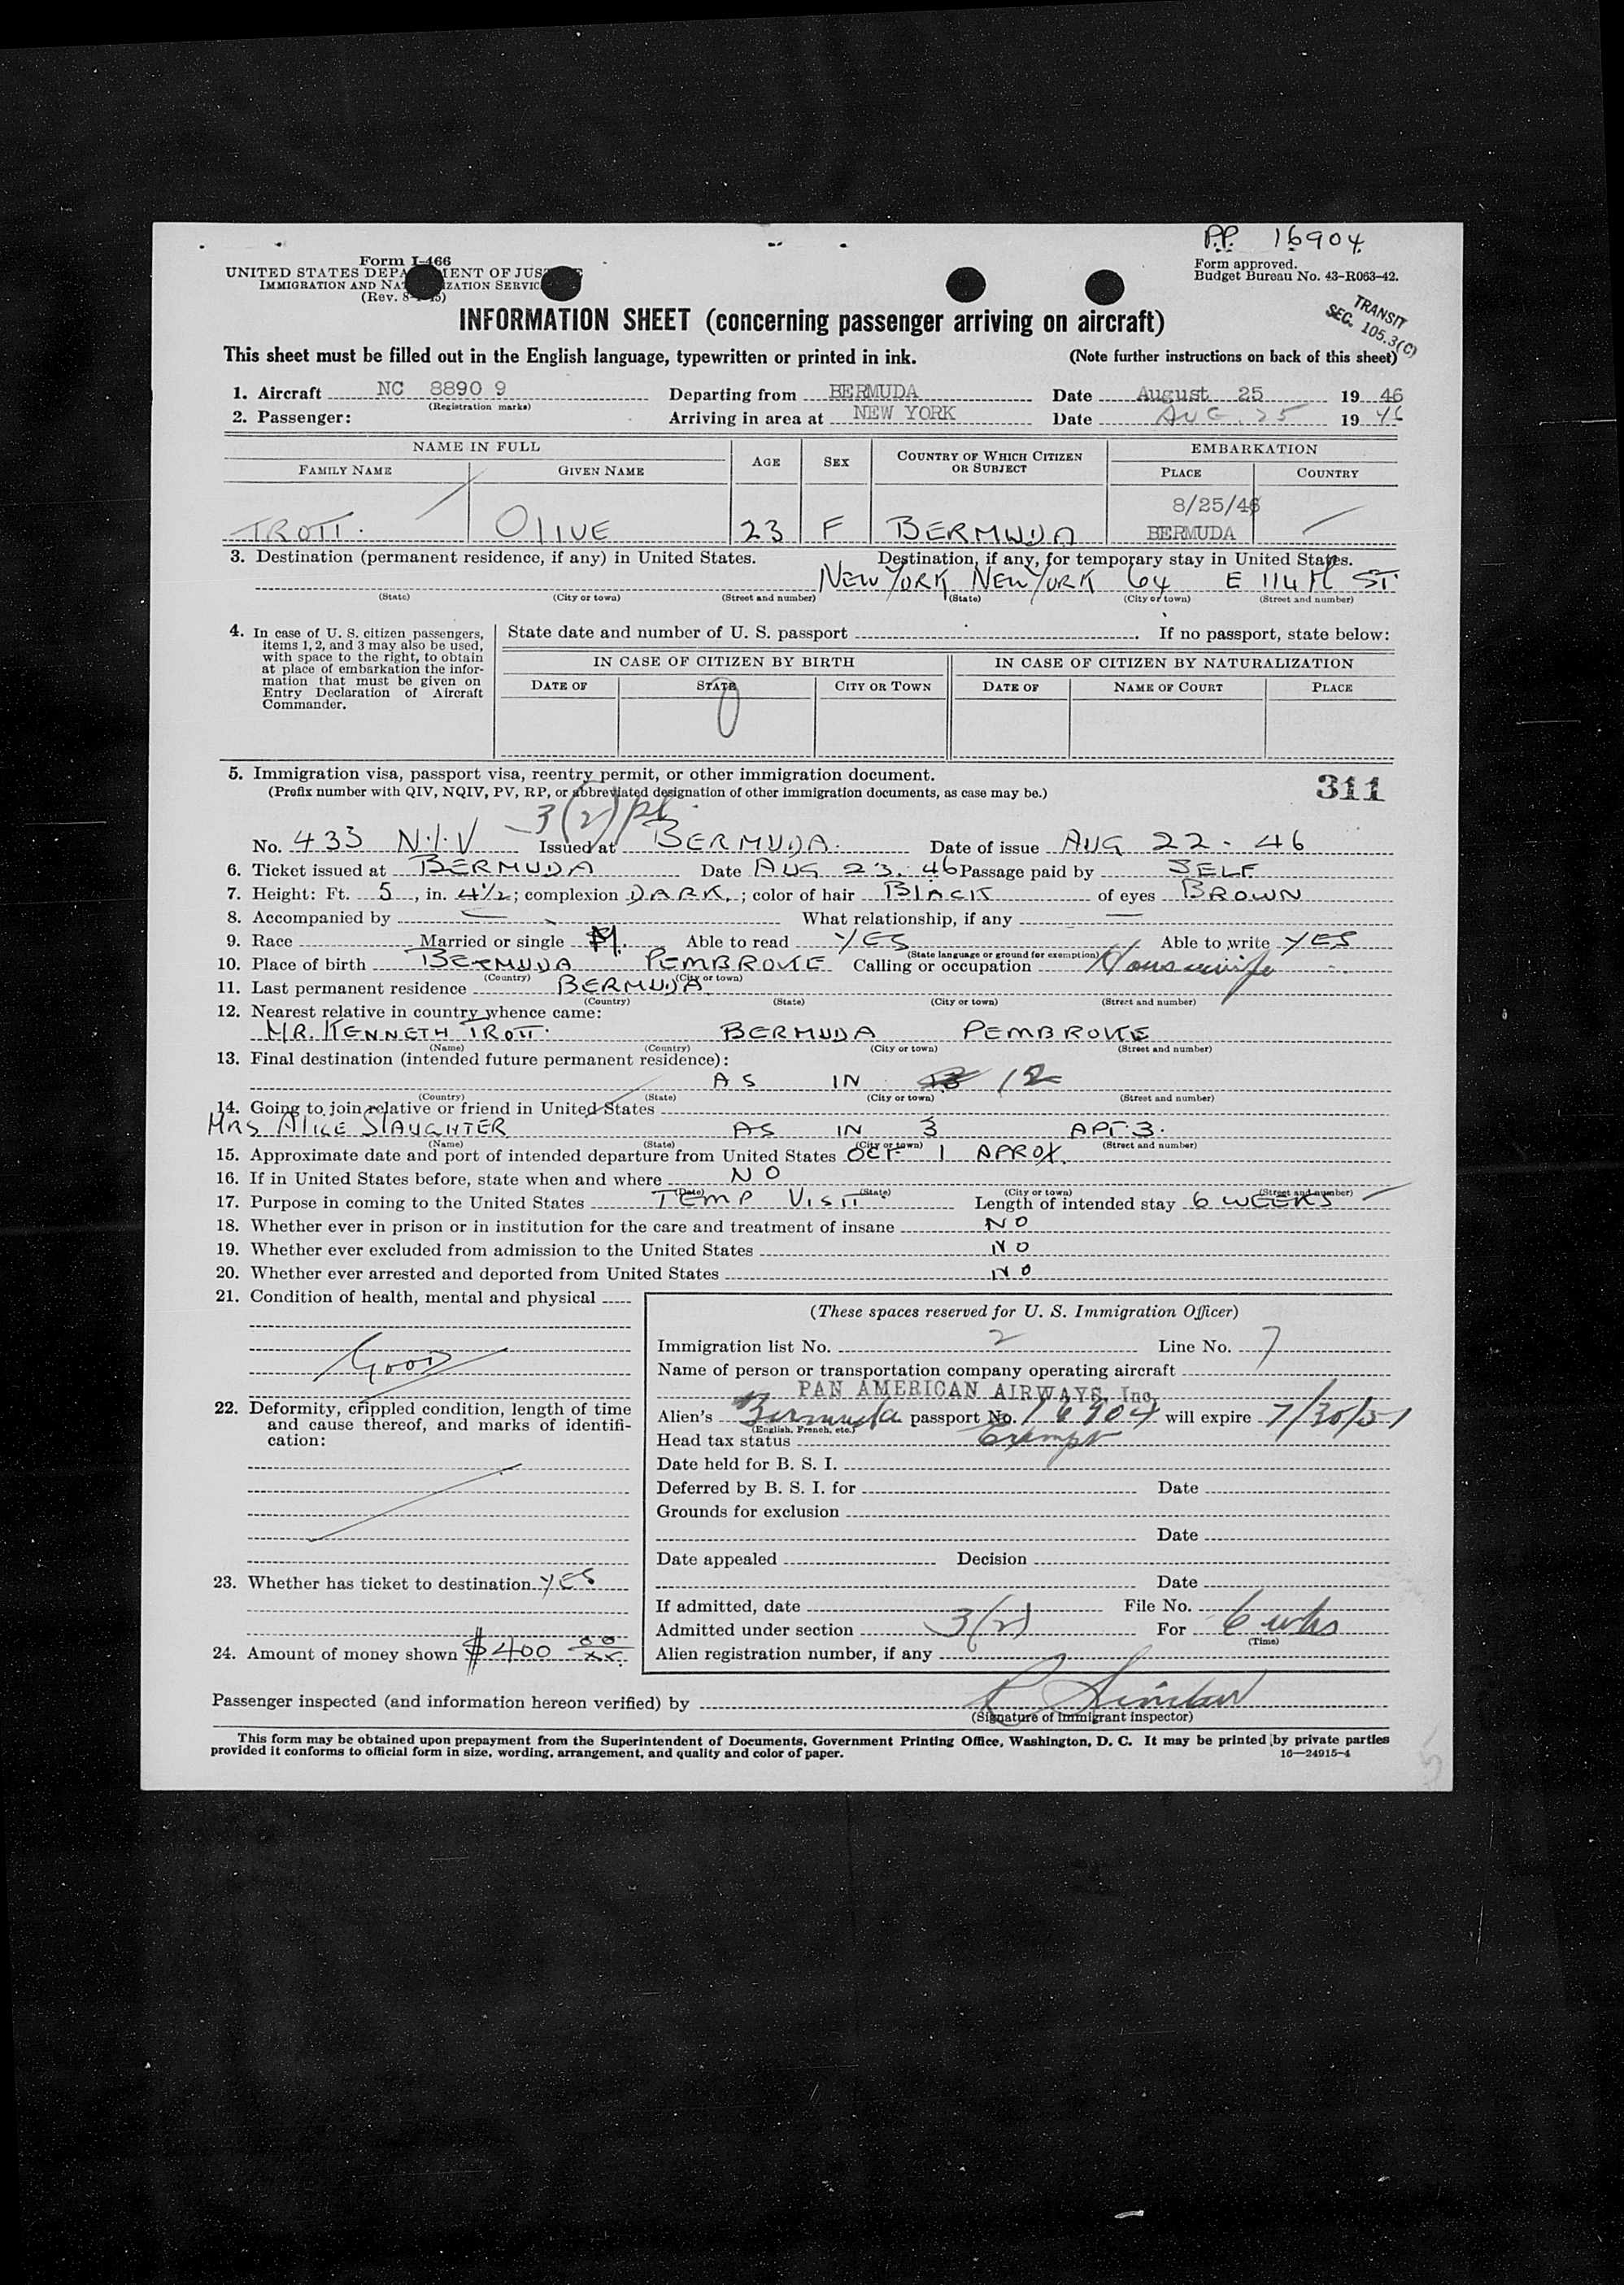 P.P. 16904
Form I-466
UNITED STATES DEPA MENT OF JUS E
IMMIGRATION AND NAT ZATION SERVIC
(Rev. 8- 45)
Form approved.
Budget Bureau No. 43-R063-42.
TRANSIT
SEC. 105.3(C)
INFORMATION SHEET (concerning passenger arriving on aircraft)
This sheet must be filled out in the English language, typewritten or printed in ink. (Note further instructions on back of this sheet)
1. Aircraft NC 8890 9 Departing from BERMUDA Date August 25 19 46
(Registration marks)
2. Passenger: Arriving in area at NEW YORK Date AUG. 25 19 46
NAME IN FULL AGE SEX COUNTRY OF WHICH CITIZEN OR SUBJECT EMBARKATION
FAMILY NAME GIVEN NAME PLACE COUNTRY
8/25/46
TROTT. OLIVE 23 F BERMUDA BERMUDA
3. Destination (permanent residence, if any) in United States. Destination, if any, for temporary stay in United States.
NEW YORK NEW YORK 64 E 114 th ST.
(State) (City or town) (Street and number) (State) (City or town) (Street and number)
4. In case of U. S. citizen passengers, items 1, 2, and 3 may also be used, with space to the right, to obtain at place of embarkation the information that must be given on Entry Declaration of Aircraft Commander.
State date and number of U. S. passport . If no passport, state below:
IN CASE OF CITIZEN BY BIRTH IN CASE OF CITIZEN BY NATURALIZATION
DATE OF STATE CITY OR TOWN DATE OF NAME OF COURT PLACE
5. Immigration visa, passport visa, reentry permit, or other immigration document. 311
(Prefix number with QIV, NQIV, PV, RP, or abbreviated designation of other immigration documents, as case may be.)
3(2)
No. 433 N.I.V Issued at BERMUDA. Date of issue AUG 22 - 46
6. Ticket issued at BERMUDA Date AUG 23. 46 Passage paid by SELF
7. Height: Ft. 5, in. 4½; complexion DARK.; color of hair BLACK of eyes BROWN
8. Accompanied by — What relationship, if any —
9. Race Married or single M. Able to read YES Able to write YES
(State language or ground for exemption)
10. Place of birth BERMUDA PEMBROKE Calling or occupation Housewife
(Country) (City or town)
11. Last permanent residence BERMUDA
(Country) (State) (City or town) (Street and number)
12. Nearest relative in country whence came:
MR. KENNETH TROTT. BERMUDA PEMBROKE
(Name) (Country) (City or town) (Street and number)
13. Final destination (intended future permanent residence):
AS IN 12
(Country) (State) (City or town) (Street and number)
14. Going to join relative or friend in United States
MRS ALICE SLAUGHTER AS IN 3 APT. 3.
(Name) (State) (City or town) (Street and number)
15. Approximate date and port of intended departure from United States OCT 1 APROX.
16. If in United States before, state when and where NO
(Date) (State) (City or town) (Street and number)
17. Purpose in coming to the United States TEMP VISIT Length of intended stay 6 WEEKS
18. Whether ever in prison or in institution for the care and treatment of insane NO
19. Whether ever excluded from admission to the United States NO
20. Whether ever arrested and deported from United States NO
21. Condition of health, mental and physical
GOOD
22. Deformity, crippled condition, length of time and cause thereof, and marks of identification:
23. Whether has ticket to destination YES
24. Amount of money shown $400 00/xx.
(These spaces reserved for U. S. Immigration Officer)
Immigration list No. 2 Line No. 7
Name of person or transportation company operating aircraft
PAN AMERICAN AIRWAYS, Inc.
Alien's Bermuda passport No. 16904 will expire 7/30/51
(English, French, etc.)
Head tax status Exempt
Date held for B. S. I.
Deferred by B. S. I. for Date
Grounds for exclusion
Date
Date appealed Decision
Date
If admitted, date File No.
Admitted under section 3(2) For 6 wks
(Time)
Alien registration number, if any
Passenger inspected (and information hereon verified) by
(Signature of immigrant inspector)
This form may be obtained upon prepayment from the Superintendent of Documents, Government Printing Office, Washington, D. C. It may be printed by private parties
provided it conforms to official form in size, wording, arrangement, and quality and color of paper. 16—24915-4